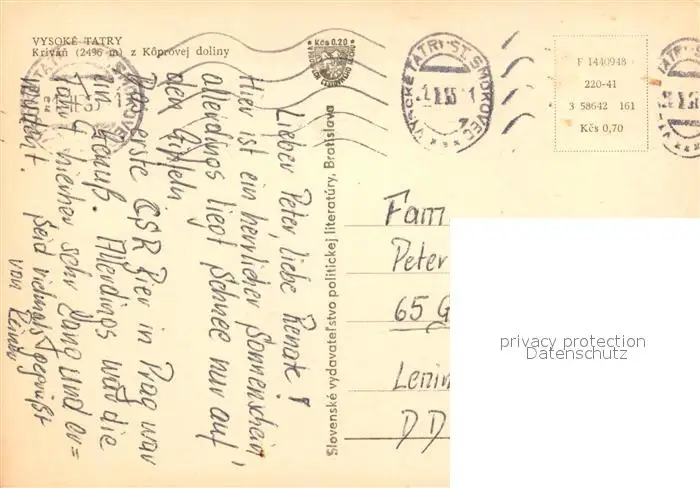 VYSOKÉ TATRY
Kriváň (2496 m) z Kôprovej doliny
Kčs 0.20
VYSOKÉ TATRY ST. SMOKOVEC
F 1440948
220-41
3 58642 161
Kčs 0,70
Slovenské vydavateľstvo politickej literatúry, Bratislava
Lieber Peter, liebe Renate!
Hier ist ein herrlicher Sonnenschein,
allerdings liegt Schnee nur auf
den Gipfeln
Das erste ČSR Bier in Prag war
ein Genuß. Allerdings war die
Fahrt hierher sehr lang und er=
müdent. Seid vielmals gegrüßt
von Reiner
Fam
Peter
65 G
Lenin
DD
privacy protection
Datenschutz